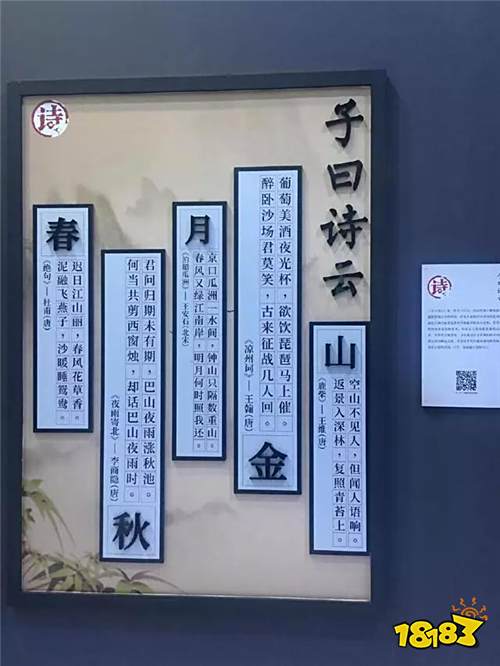 子曰诗云
诗
山
空山不见人，但闻人语响。
返景入深林，复照青苔上。
《鹿柴》—王维(唐)
葡萄美酒夜光杯，欲饮琵琶马上催。
醉卧沙场君莫笑，古来征战几人回。
《凉州词》—王翰(唐)
金
月
京口瓜洲一水间，钟山只隔数重山。
春风又绿江南岸，明月何时照我还。
《泊船瓜洲》—王安石(北宋)
君问归期未有期，巴山夜雨涨秋池。
何当共剪西窗烛，却话巴山夜雨时。
《夜雨寄北》—李商隐(唐)
秋
春
迟日江山丽，春风花草香。
泥融飞燕子，沙暖睡鸳鸯。
《绝句》—杜甫(唐)
诗
18183